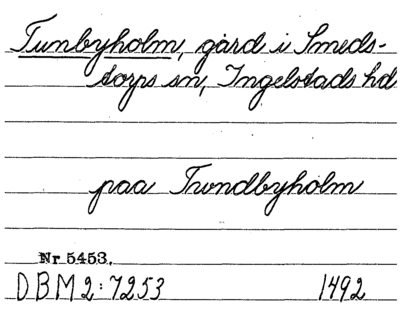 Tunbyholm, gård i Smeds-
torps sn, Ingelstads hd
paa Trundbyholm
Nr 5453.
DBM 2:7253 1492